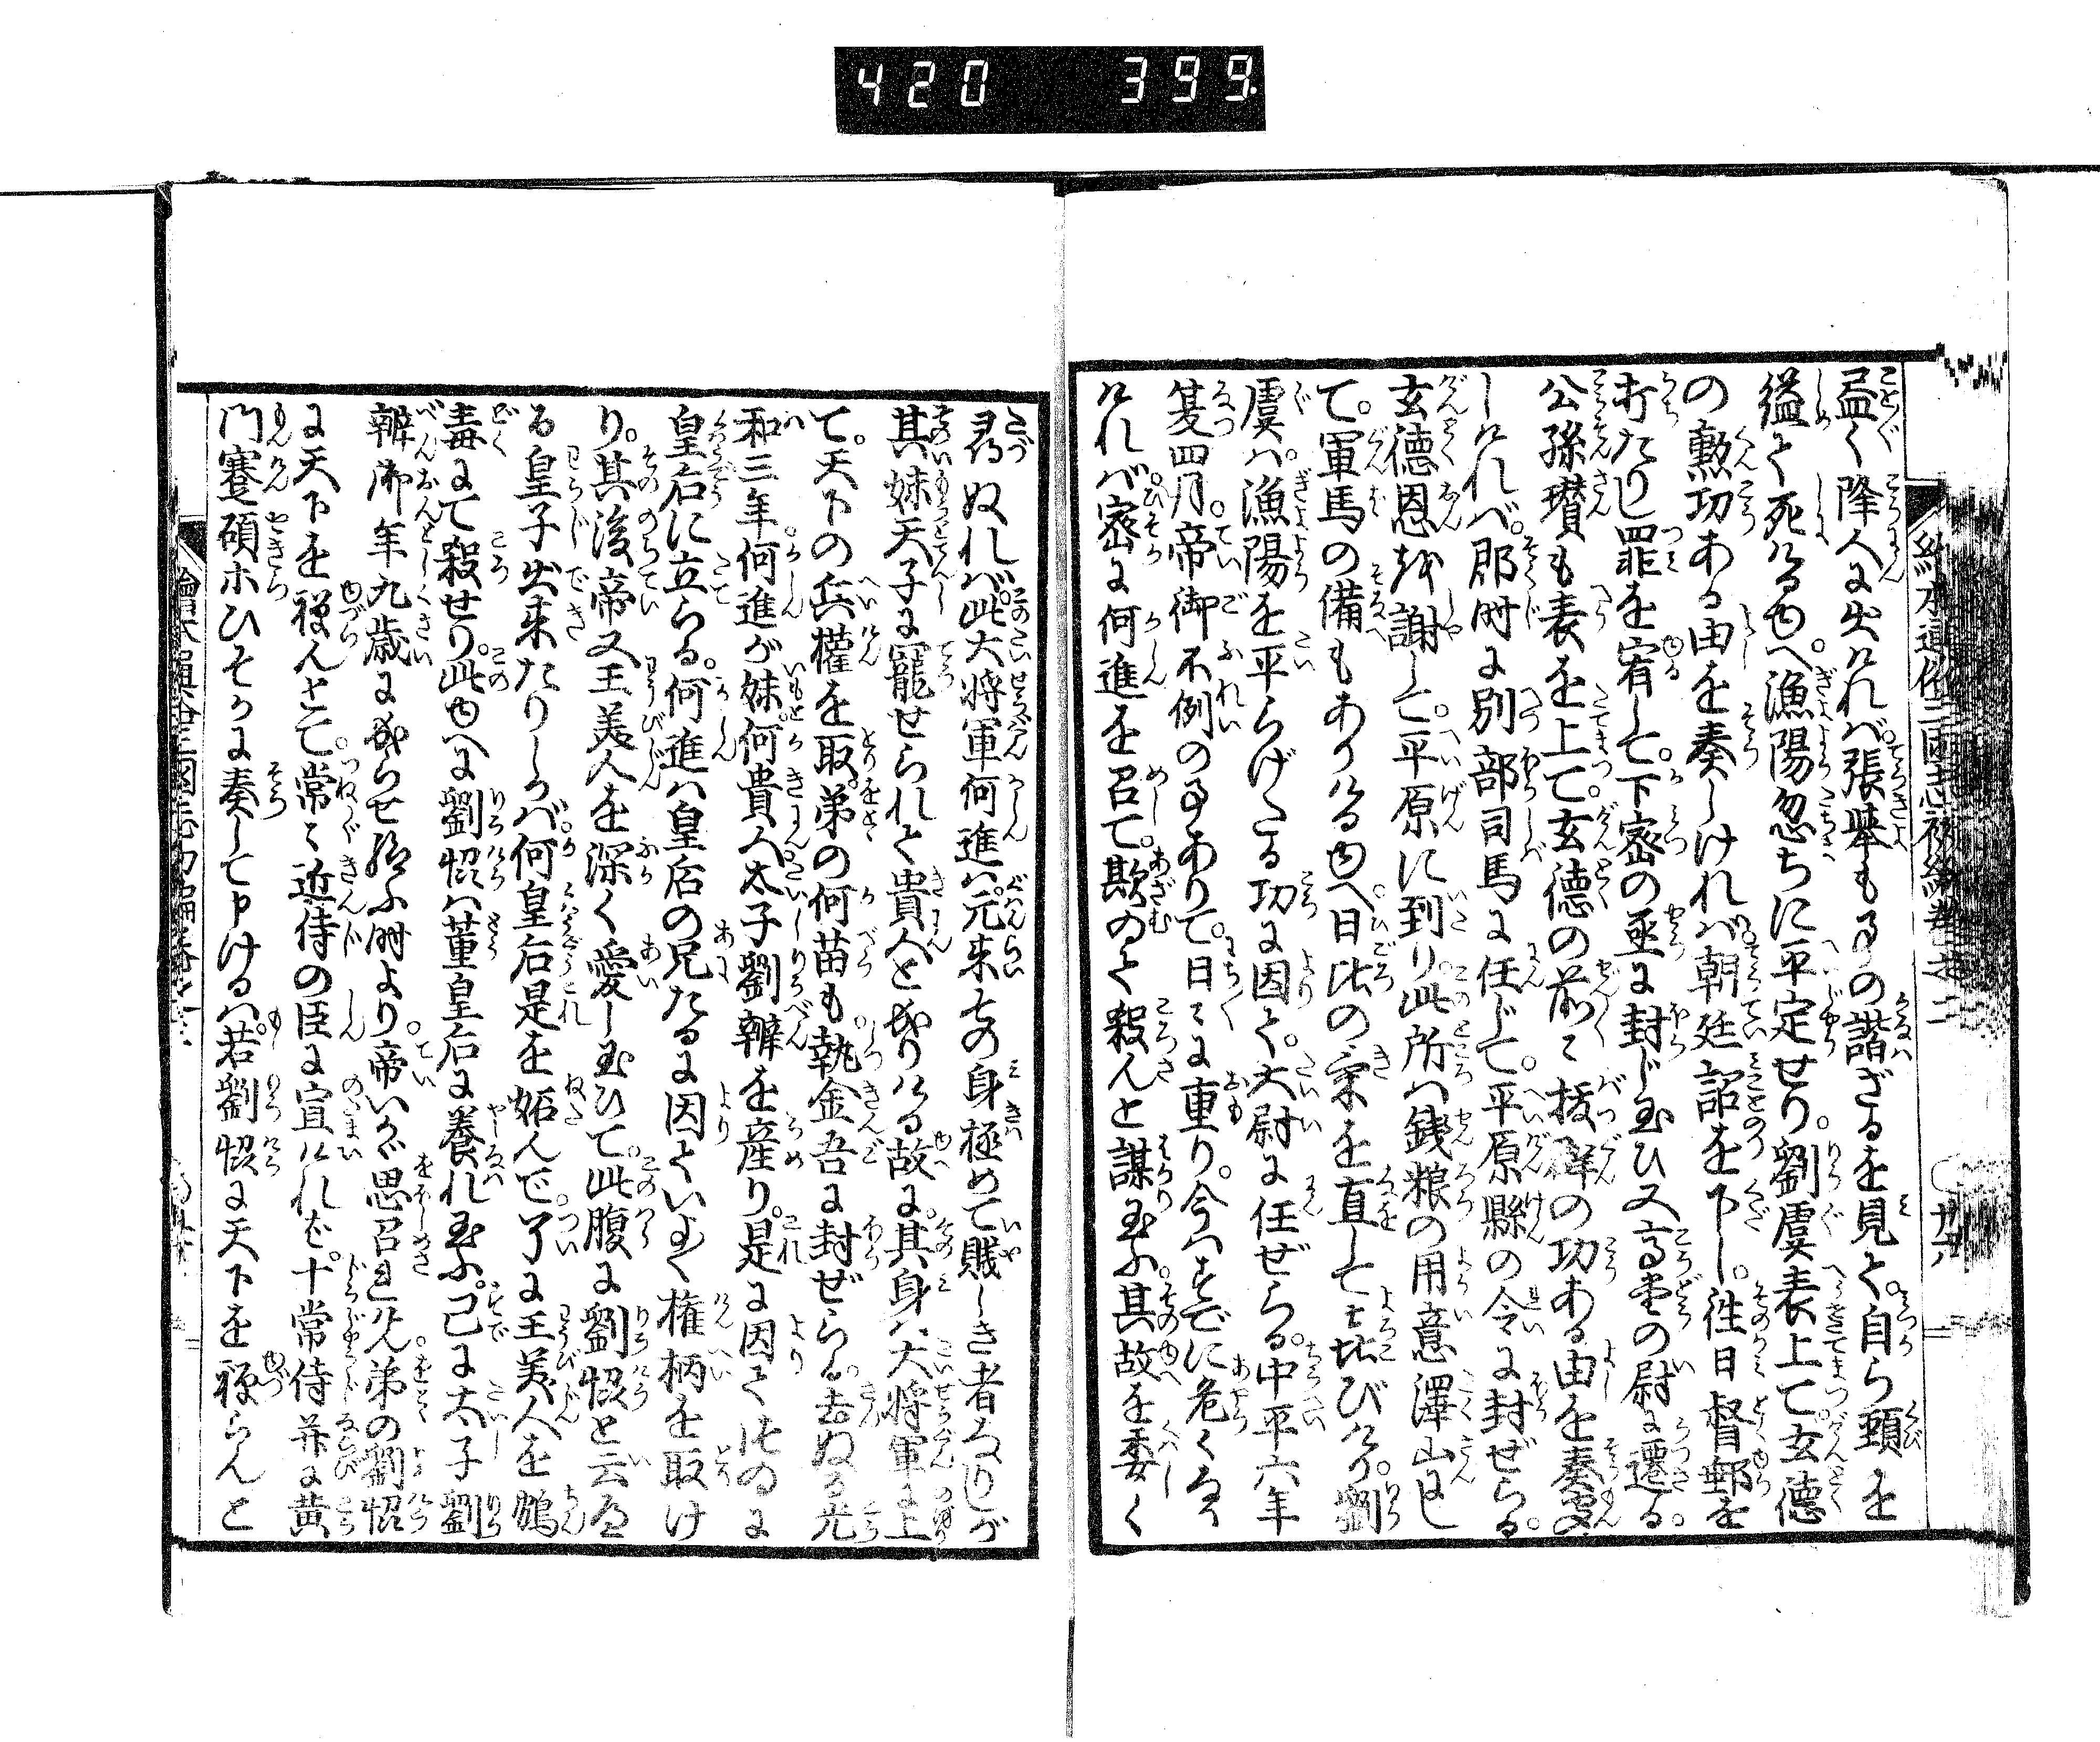 420 399
盡く降人に出ければ。張擧もゐの諧ざるを見て。自ら頸を
縊て死ける由へ。漁陽忽ちに平定せり。劉虞表上て。玄德
の勲功ある由を奏しければ。朝廷詔を下し。徃日督郵を
打たりし罪を宥して。下密の丞に封じ玉ひ又高堂の尉に遷る。
公孫瓚も表を上て。玄德の前々抜群の功ある由を奏聞
しければ。即時に別部司馬に任じて。平原縣の令に封ぜらる。
玄德恩を謝して。平原に到り。此所ハ錢粮の用意澤山にし
て。軍馬の備もありける由へ。日比の氣を直して喜びけり。劉
虞ハ。漁陽を平らげたる功に因て。大尉に任ぜらる。中平六年
夏四月。帝御不例の事ありて。日々に重り。今ハすでに危くなり
ければ。密に何進を召て。欺のて殺んと謀玉ふ。其故を委く
尋ぬれば。此大將軍何進ハ。元来その身極めて賎しき者なりしが
其妹天子に寵せられて貴人と成りける故に。其身ハ大將軍に上
て。天下の兵權を取。弟の何苗も。執金吾に封ぜらる。去ぬる光
和三年。何進が妹。何貴人。太子劉辯を産り。是に因てつゐに
皇后に立らる。何進ハ皇后の兄たるに因ていよ〱権柄を取け
り。其後帝又王美人を深く愛し玉ひて。此腹に劉恊と云へ
る皇子出来たりしかば。何皇后是を妬んで。了に王美人を鴆
毒にて殺せり。此由へに劉恊ハ董皇后に養れ玉ふ。已に太子劉
辯御年九歳に成らせ給ふ時より。帝いかゞ思召れけん。弟の劉恊
に天下を禪んとて。常々近侍の臣に宣ければ。十常侍并に黄
門蹇碩ホひそかに奏して申けるハ。若劉恊に天下を禪らんと